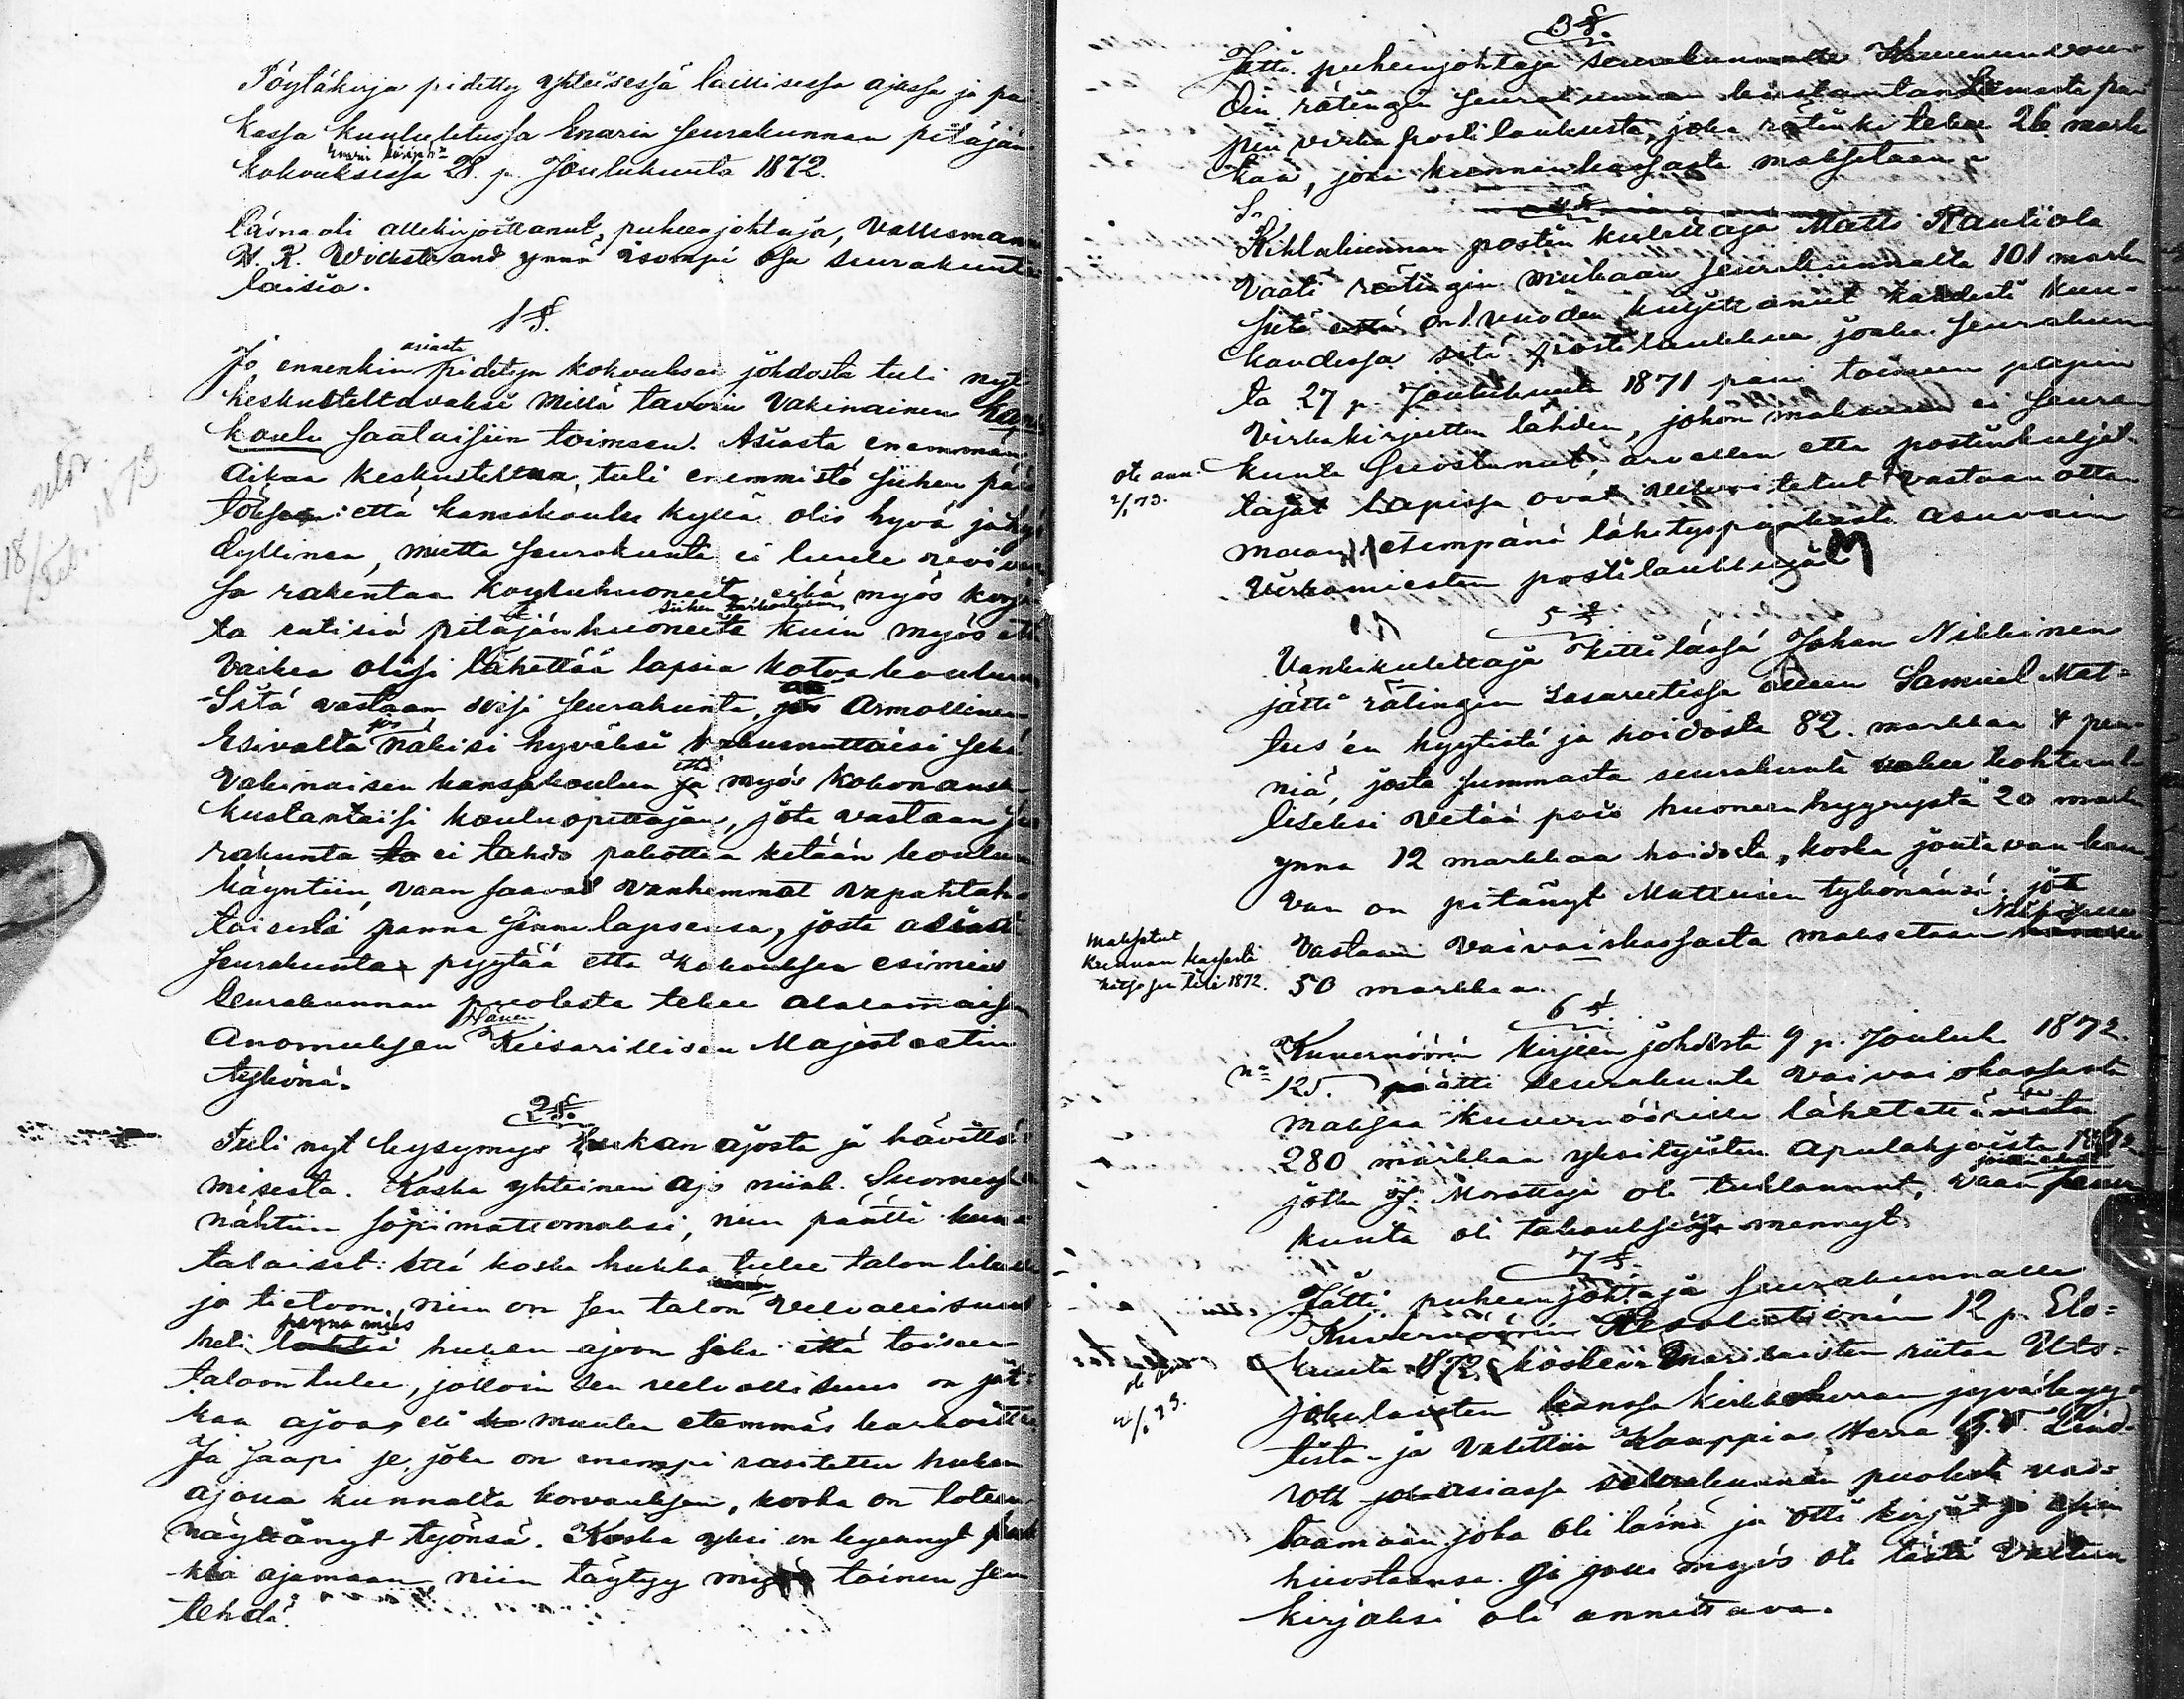 Pöytäkirja pidetty yhteisessä laillisessa ajassa ja pai
kassa kuulutetussa Enarin seurakunnan pitäjän
kokouksessa 28. p. Joulukuuta 1872.
Läsnä oli allekirjoittanut, puheenjohtaja, Vallesmanni
H. K. Wickstrand ynnä isompi osa seurakunta
laisia.
1 §.
asiasta
Jo ennenkin pidetyn kokouksen johdosta tuli nyt
keskusteltavaksi millä tavoin vakinainen kansa
koulu saataisiin toimeen. Asiasta enemmän
aikaa keskusteltua, tuli enemmistö siihen pää
että kansakoulu kyllä olis hyvä ja hyö
dyllinen, mutta seurakunta ei luule voivan
sa rakentaa kouluhuoneita, eikä myös korja
siihen tarkoitukseen
ta entisiä pitäjänhuoneita kuin myös että
vaikea olisi lähettää lapsia kotoa kouluun
Sitä vastaan soisi seurakunta, Armollinen
jos
Esivalta näkisi hyväksi sekä
Vakinaisen kansakoulun myös kokonansa
kustantaisi kouluopettajan, jota vastaan seu
rakunta ei tahdo pakottaa ketään koulun
käyntiin, vaan saavat vanhemmat vapahtah
toisesti panna sinne lapsensa, josta asiasta
seurakunta pyytää että kokouksen esimies
seurakunnan puolesta tekee alamaisen
Hänen
Anomuksen Keisarillisen Majesteetin
tykönä.
2 §.
Tuli nyt kysymys hukan ajosta ja hävittä
misestä. Koska yhteinen ajo
nähtiin sopimattomaksi, niin päätti kun
talaiset: että koska hukka tulee talon likelle
ja tietoon, niin on sen talon velvollisuus
panna mies
heti hukan ajoon siksi että toiseen
taloon tulee, jolloin sen velvollisuus on jat
kaa ajoa, eli muulla etemmäs karkoittaa
Ja saapi se, joka on enempi rasitettu hukan
ajossa kunnalta korvauksen, koska on toteen
näyttänyt työnsä. Koska yksi on kyennyt
ajamaan niin täytyy myös toinen sen
tehdä.
18/
1873
3 §.
Jätti puheenjohtaja seurakunnalle
rätingin seurakunnan kustantamasta pap
pien virka postilaukusta, joka rätinki tekee 26 mark
kaa, joka kunnankassasta maksetaan
4 §.
Kihlakunnan postin kuljettaja Matti Rautiola
Vaati rätingin mukaan seurakunnalta 101 markk
siitä on 1 vuoden kuljettanut kahdesti kuu-
kaudessa sitä postilaukkua jonka seurakun
ta 27 p. Joulukuuta 1871 pani toimeen papin
virkakirjeitten tähden, johon maksuun ei seura
kunta suostunut, arvellen että postinkuljet-
tajat Lapissa ovat velvoitetut vastaan otta
maan etempänä lähityspaikasta asuvain
virkamiesten postilaukkuja
ote ann.
2/1 73.
5 §.
Vankikuljettaja Kittilässä Johan Nikkinen
jätti rätingin Lasaretissa olleen Samuel Mat-
tus'en kyytistä ja hoidosta 82. markkaa 4 pen-
niä, josta summasta seurakunta kohtuul
liseksi vetää pois huoneen hyyrystä 20 markk
ynnä 12 markkaa hoidosta, koska joutavan kau
van on pitänyt Mattusen tykönänsä. jota
Nikkiselle
Vastaan vaivaiskassasta maksetaan
50 markkaa.
Maksetut
kunnan kassasta
katso sen tili 1872.
6 §.
Kuvernöörin kirjeen johdosta 9 p. Jouluk 1872.
no 125. päätti seurakunta vaivaiskassasta
maksaa kuvernöörille lähetettävistä
280 markkaa yksityisten apulahjoista
jotka J. Morottaja oli tuhlannut, vaan
kunta oli takaukseen mennyt.
7 §.
Jätti puheenjohtaja seurakunnalle
Kuvernöörin Resolutionin 12 p. Elo-
kuuta 1872 koskeva Enarilaisten riitaa Uts-
jokilaisten kanssa kirkkoherran jyväkyy-
tistä - ja valittiin Kauppias Herra Lind-
roth asiassa seurakunnan puolesta vas-
taamaan, joka oli läsnä ja otti kirjat ja asian
huostaansa. ja joille myös ote tästä
kirjaksi oli annettava.